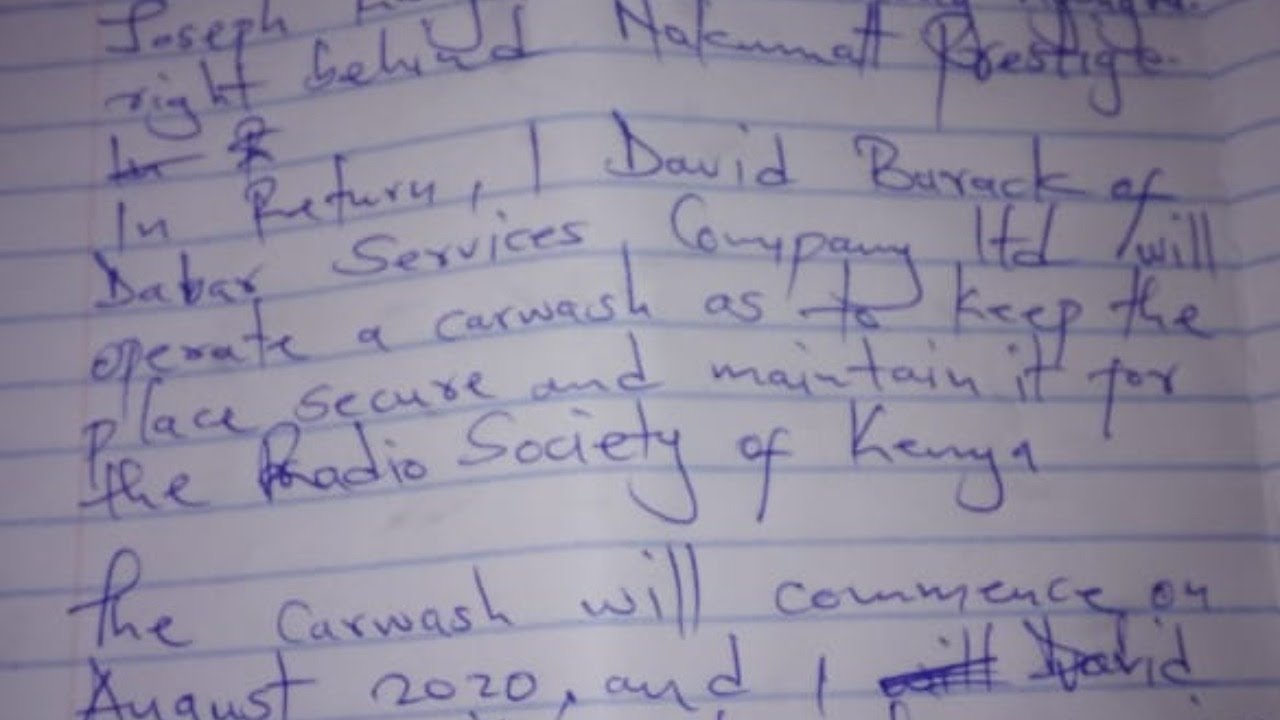 Joseph
right behind Nakumatt Prestige.
In
In Return, I David Barack of
Dabar Services Company ltd will
operate a carwash as to keep the
place secure and maintain it for
the Radio Society of Kenya
the carwash will commence on
August 2020, and I will David